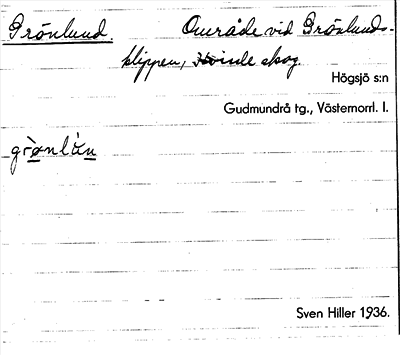 Grönlund. Område vid Grönlunds-
klippen, inde skog.
Högsjö s:n
Gudmundrå tg., Västernorrl. l.
grø̀nlún
Sven Hiller 1936.